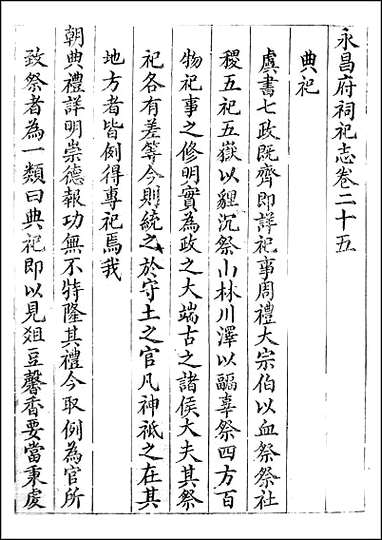 永昌府祠祀志卷二十五
典祀
虞書七政既齊即詳祀事周禮大宗伯以血祭祭社
稷五祀五嶽以貍沉祭山林川澤以疈辜祭四方百
物祀事之修明實為政之大端古之諸侯大夫其祭
祀各有差等今則統之於守土之官凡神祇之在其
地方者皆例得專祀焉我
朝典禮詳明崇德報功無不特隆其禮今取例為官所
致祭者為一類曰典祀即以見俎豆馨香要當秉虔